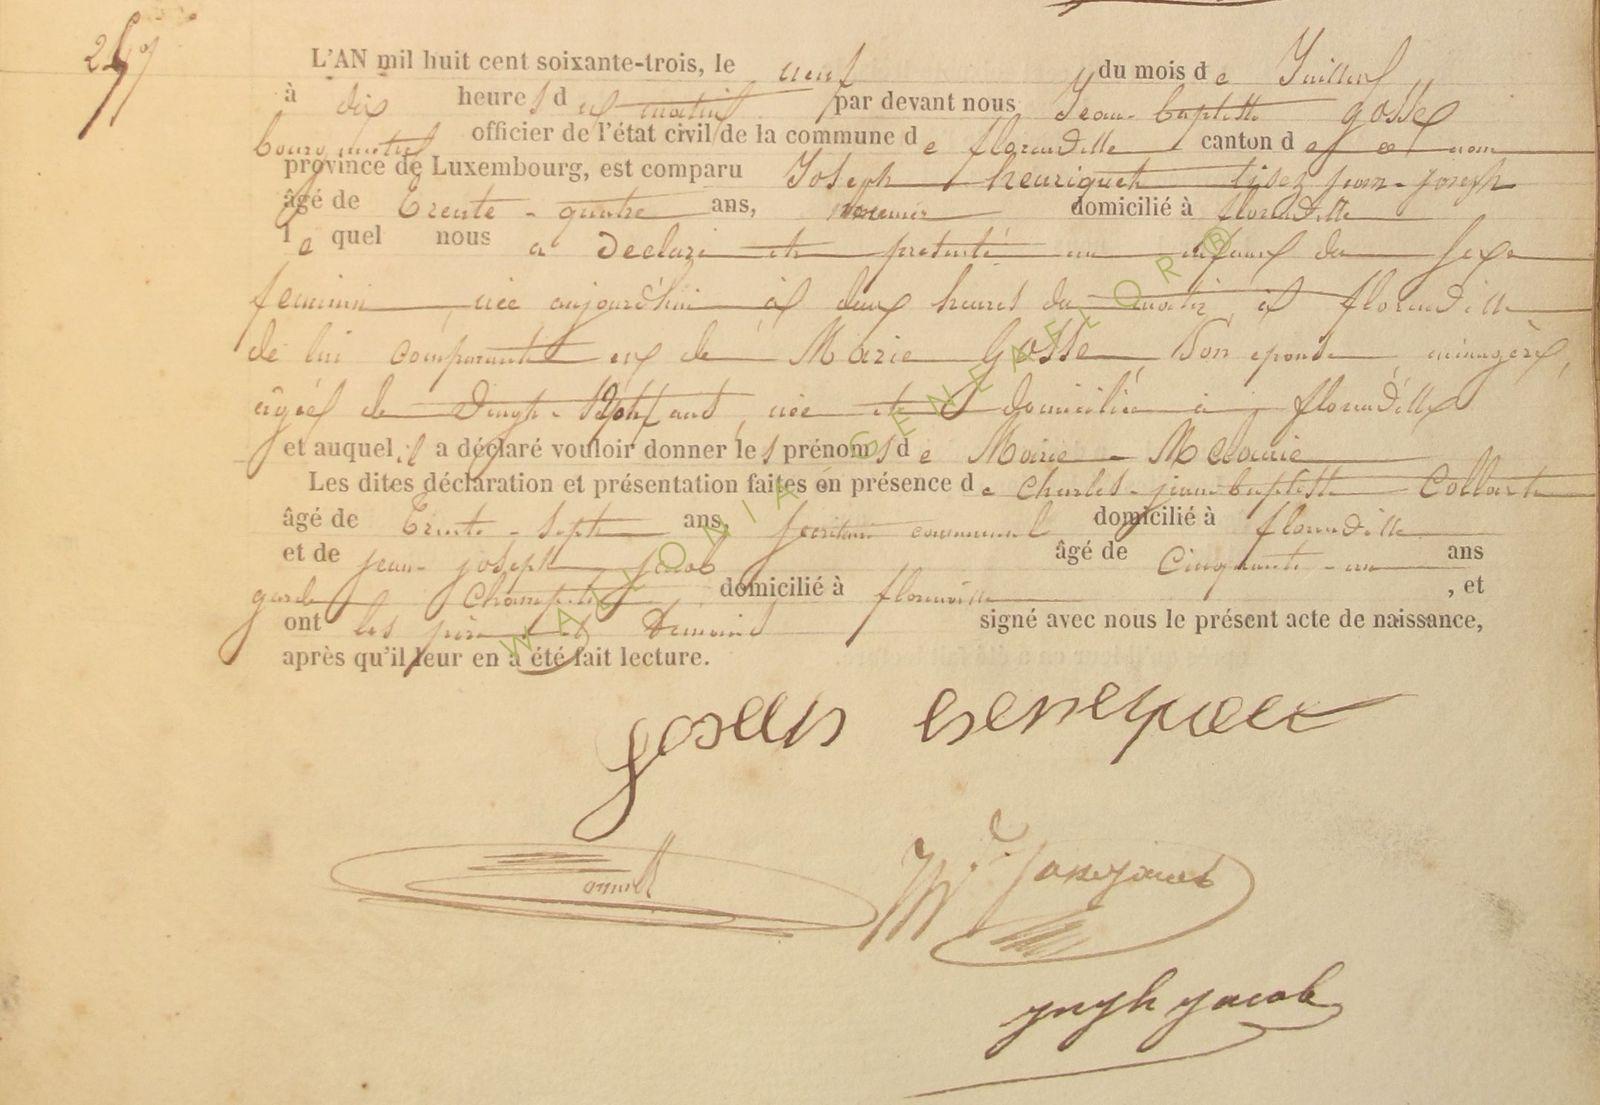 L'AN mil huit cent soixante-trois, le neuf du mois de Juillet
à dix heures du matin par devant nous Jean-baptiste Gosse
bourgmestre officier de l'état civil de la commune de florenville canton de ce nom
province de Luxembourg, est comparu Joseph henriquet lisez jean-joseph
âgé de Trente-quatre ans, domicilié à florenville
lequel nous a déclaré et présenté un enfant du sexe
feminin, née aujourd'hui à deux heures du matin, à florenville
de lui comparant et de Marie Gosse, son epouse, ménagère,
agée de vingt-sept ans, née et domiciliée à florenville
et auquel il a déclaré vouloir donner les prénoms de Marie-Mélanie
Les dites déclaration et présentation faites en présence de Charles-jean baptiste Collart
âgé de Trente-sept ans, secrétaire communal domicilié à florenville
et de jean-joseph jacob âgé de Cinquante-un ans
garde Champêtre domicilié à florenville, et
ont les père et témoins signé avec nous le présent acte de naissance,
après qu'il leur en a été fait lecture.
WALLONIA GENEAFLOR ®
joseph henriquet
joseph jacob